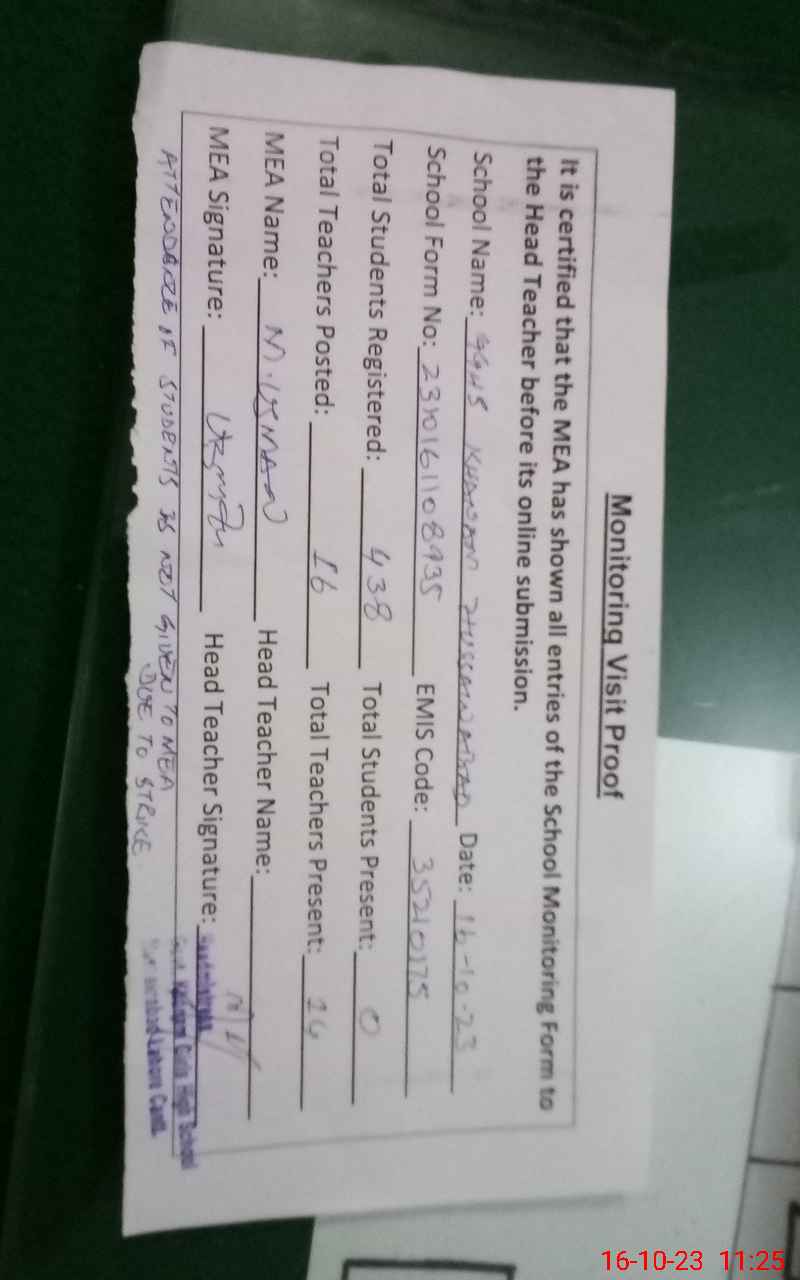 Monitoring Visit Proof
It is certified that the MEA has shown all entries of the School Monitoring Form to
the Head Teacher before its online submission.
School Name: GGHS KHANAM HUSSAINABAD Date: 16-10-23
School Form No: EMIS Code: 35210175
Total Students Registered: 438 Total Students Present: 0
Total Teachers Posted: 16 Total Teachers Present: 14
MEA Name: M. USMAN Head Teacher Name:
MEA Signature: Usman Head Teacher Signature:
ATTENDANCE OF STUDENTS IS NOT GIVEN TO MEA
DUE TO STRIKE
Headmistress
Girls High School
Lahore Cantt.
16-10-23 11:25